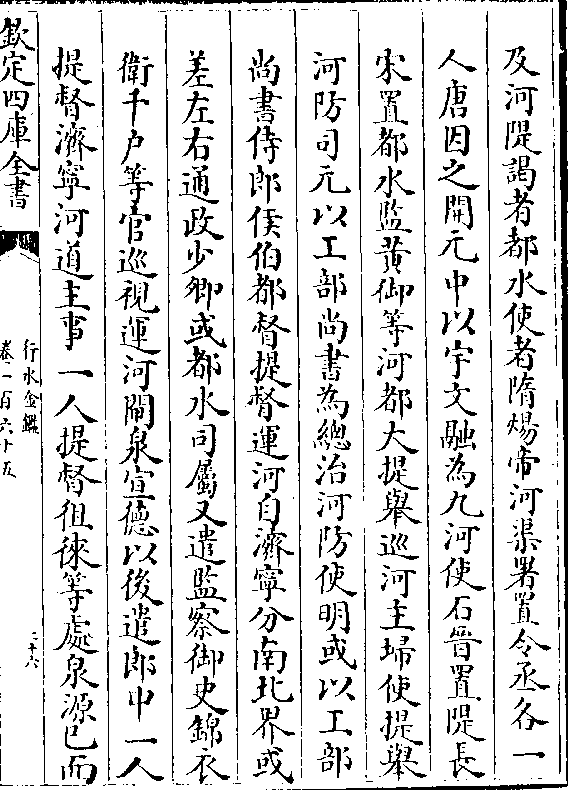 及河隄謁者都水使者隋煬帝河渠署置令丞各一
人唐因之開元中以宇文融為九河使石晉置隄長
宋置都水監黃御等河都大提舉巡河主埽使提舉
河防司元以工部尚書為總治河防使明或以工部
尚書侍郎侯伯都督提督運河自濟寧分南北界或
差左右通政少卿或都水司屬又遣監察御史錦衣
衛千户等官巡視運河閘泉宣德以後遣郎中一人
提督濟寧河道主事一人提督徂徠等處泉源已而
欽定四庫全書
行水金鑑
卷一百六十五
二十六